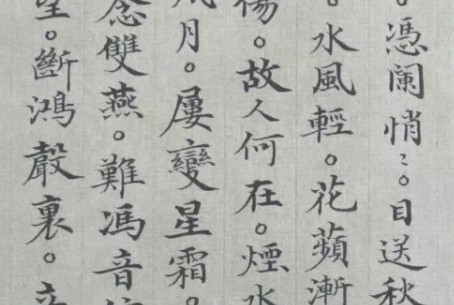 。憑闌悄〻。目送秋
。水風輕。花蘋漸
傷。故人何在。煙水
月。屢變星霜。
念雙燕。難馮音
望。斷鴻聲裏。